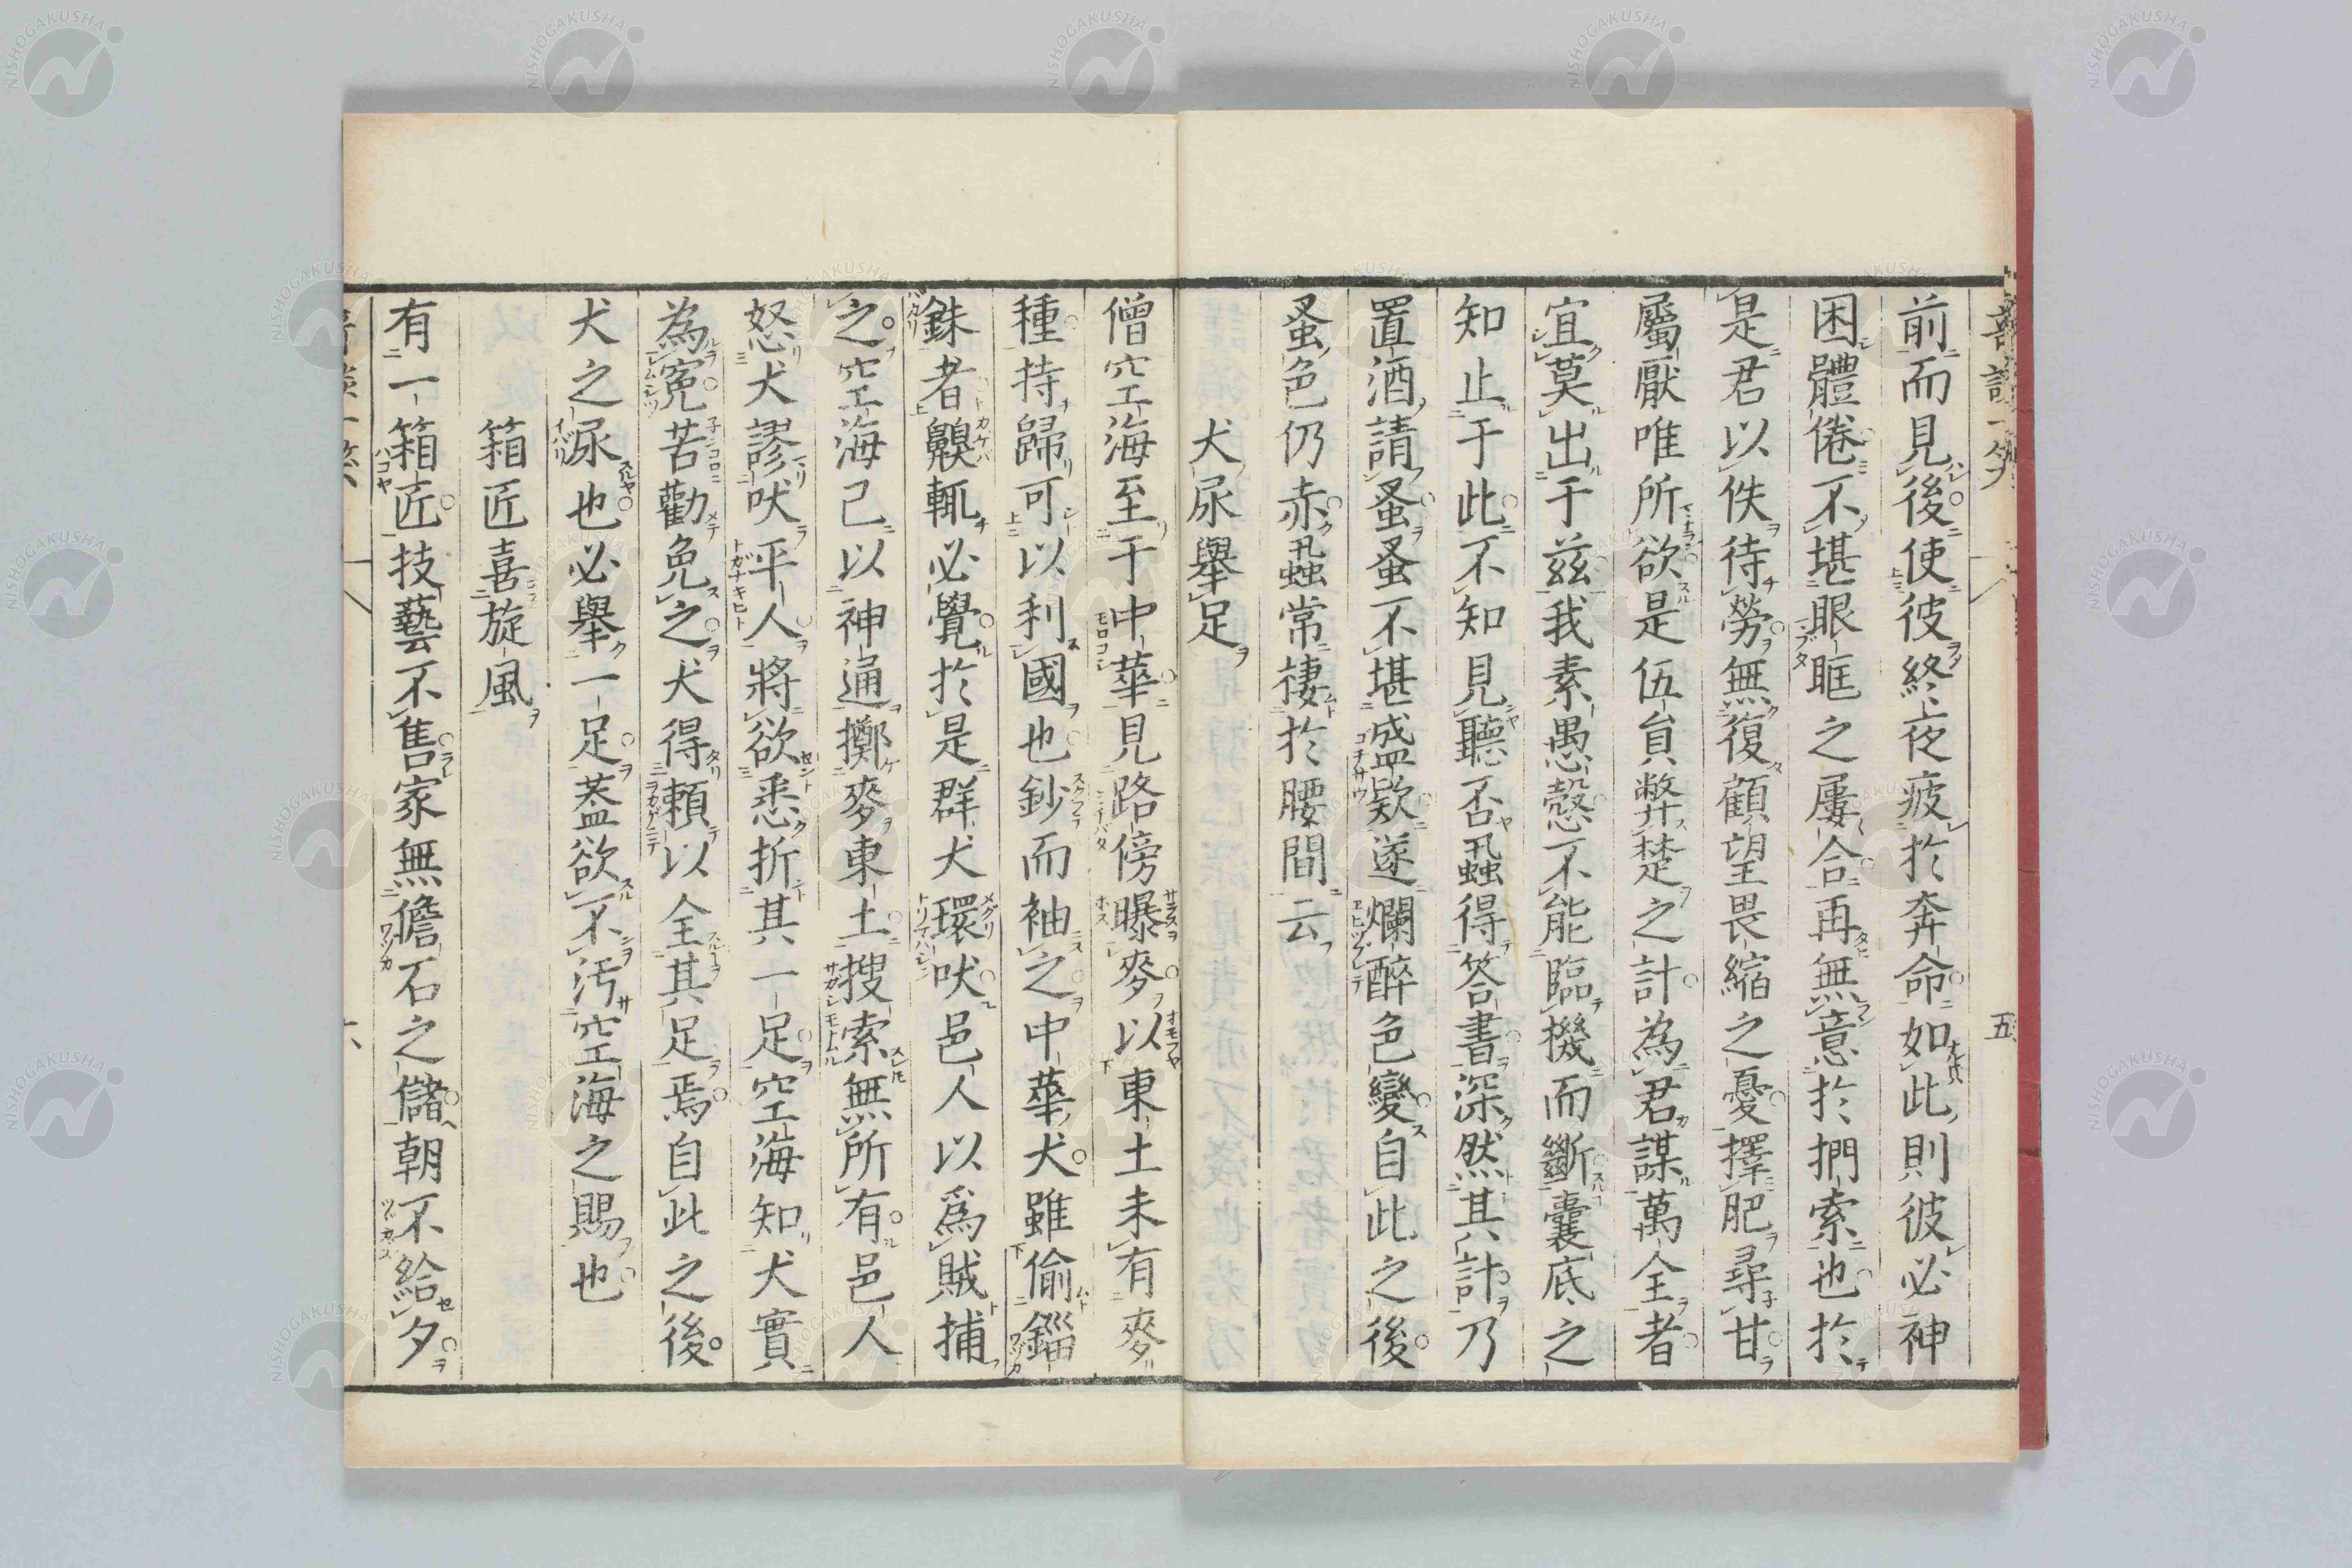 前而見後使彼終夜疲於奔命如此則彼必神
困體倦不堪眼眶之屢合再無意於捫索也於
是君以佚待勞無復顧望畏縮之憂擇肥尋甘
屬厭唯所欲是伍員弊楚之計為君謀萬全者
宜莫出于茲我素愚愨不能臨機而斷囊底之
知止于此不知見聽否蝨得答書深然其計乃
置酒請蚤蚤不堪盛歎遂爛醉色變自此之後
蚤色仍赤蝨常棲於腰間云
犬尿舉足
僧空海至于中華見路傍曝麥以東土未有麥
種持歸可以利國也鈔而袖之中華犬雖偷錙
銖者齅輒必覺於是群犬環吠邑人以爲賊捕
之空海已以神通擲麥東土搜索無所有邑人
怒犬謬吠平人將欲悉折其一足空海知犬實
為寃苦勸免之犬得賴以全其足焉自此之後
犬之尿也必舉一足葢欲不汚空海之賜也
箱匠喜旋風
有一箱匠技藝不售家無儋石之儲朝不給夕
五
NISHOGAKUSHA